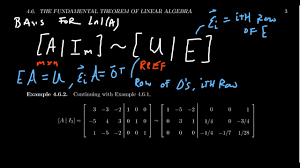 4.6. THE FUNDAMENTAL THEOREM OF LINEAR ALGEBRA 3
BASIS FOR LN(A)
[A | Iₘ] ~ [U | E] e⃗ᵢ = iTH ROW OF E
m×n RREF
EA = U, e⃗ᵢA = 0⃗ᵀ ROW OF 0'S, iTH ROW
Example 4.6.2. Continuing with Example 4.6.1,
[A | I₃] = [ 3 -3 -2 | 1 0 0 ] [ 1 -5 -2 | 0 0 1 ]
[ -5 4 3 | 0 1 0 ] ~ [ 0 3 1 | 1/4 0 -3/4 ]
[ 1 -5 -2 | 0 0 1 ] [ 0 0 0 | -1/4 -1/7 1/28 ]